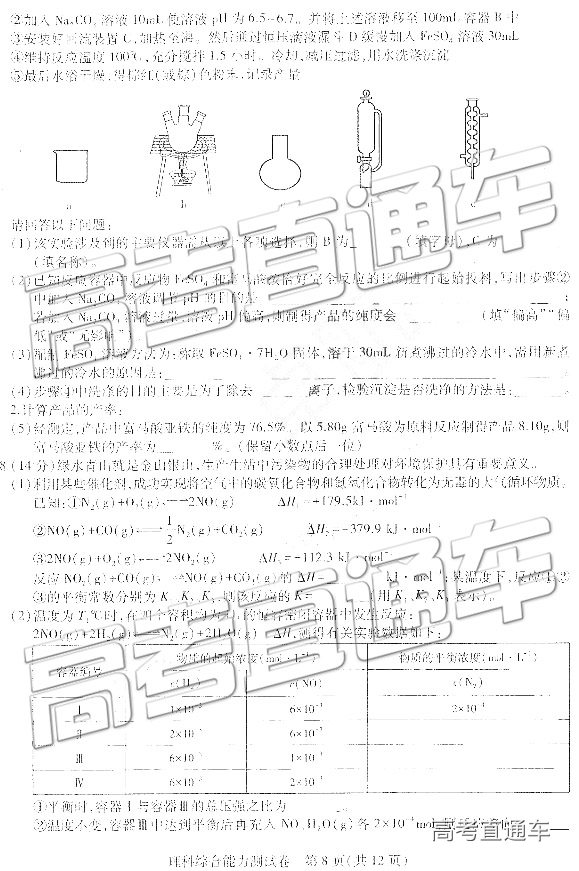 ②加入 Na₂CO₃ 溶液 10mL 使溶液 pH 为 6.5~6.7。并将上述溶液移至 100mL 容器 B 中
③安装好回流装置 C,加热至沸。然后通过恒压滴液漏斗 D 缓慢加入 FeSO₄ 溶液 30mL
④维持反应温度 100℃,充分搅拌 1.5 小时。冷却,减压过滤,用水洗涤沉淀
⑤最后水浴干燥,得棕红(或棕)色粉末,记录产量
a b c d e
请回答以下问题:
(1)该实验涉及到的主要仪器需从以上各项选择,则 B 为 (填字母),C 为
(填名称)。
(2)已知反应容器中反应物 FeSO₄ 和富马酸钠恰好完全反应的比例进行起始投料,写出步骤②
中加入 Na₂CO₃ 溶液调节 pH 的目的是 ;
若加入 Na₂CO₃ 溶液过量,溶液 pH 偏高,则制得产品的纯度会 (填“偏高”“偏
低”或“无影响”)
(3)配制 FeSO₄ 溶液方法为:称取 FeSO₄·7H₂O 固体,溶于 30mL 新煮沸过的冷水中,需用新煮
沸过的冷水的原因是: 。
(4)步骤④中洗涤的目的主要是为了除去 离子,检验沉淀是否洗净的方法是: 。
2.计算产品的产率:
(5)经测定,产品中富马酸亚铁的纯度为 76.5%。以 5.80g 富马酸为原料反应制得产品 8.10g,则
富马酸亚铁的产率为 %。(保留小数点后一位)
8.(14 分)绿水青山就是金山银山,生产生活中污染物的合理处理对环境保护具有重要意义。
(1)利用某些催化剂,成功实现将空气中的碳氧化合物和氮氧化合物转化为无毒的大气循环物质。
已知:①N₂(g)+O₂(g)⇌2NO(g) ΔH₁=+179.5kJ·mol⁻¹
②NO(g)+CO(g)⇌1/2N₂(g)+CO₂(g) ΔH₂=-379.9 kJ·mol⁻¹
③2NO(g)+O₂(g)⇌2NO₂(g) ΔH₃=+112.3 kJ·mol⁻¹
反应 NO₂(g)+CO(g)⇌NO(g)+CO₂(g) 的 ΔH= kJ·mol⁻¹;某温度下,反应①②
③的平衡常数分别为 K₁、K₂、K₃,则该反应的 K= (用 K₁、K₂、K₃ 表示)。
(2)温度为 T₁℃时,在四个容积均为 的恒容密闭容器中发生反应:
2NO(g)+2H₂(g)⇌N₂(g)+2H₂O(g) ΔH,测得有关实验数据如下:
容器编号 物质的起始浓度(mol·L⁻¹) 物质的平衡浓度(mol·L⁻¹)
c(H₂) c(NO) c(N₂)
Ⅰ
Ⅱ
Ⅲ
Ⅳ
①平衡时,容器Ⅰ与容器Ⅲ的总压强之比为
②温度不变,容器Ⅲ中达到平衡后再充入 NO、H₂O(g)各
理科综合能力测试卷 第 8 页(共 12 页)
高考直通车
高考直通车
高考直通车
高考直通车